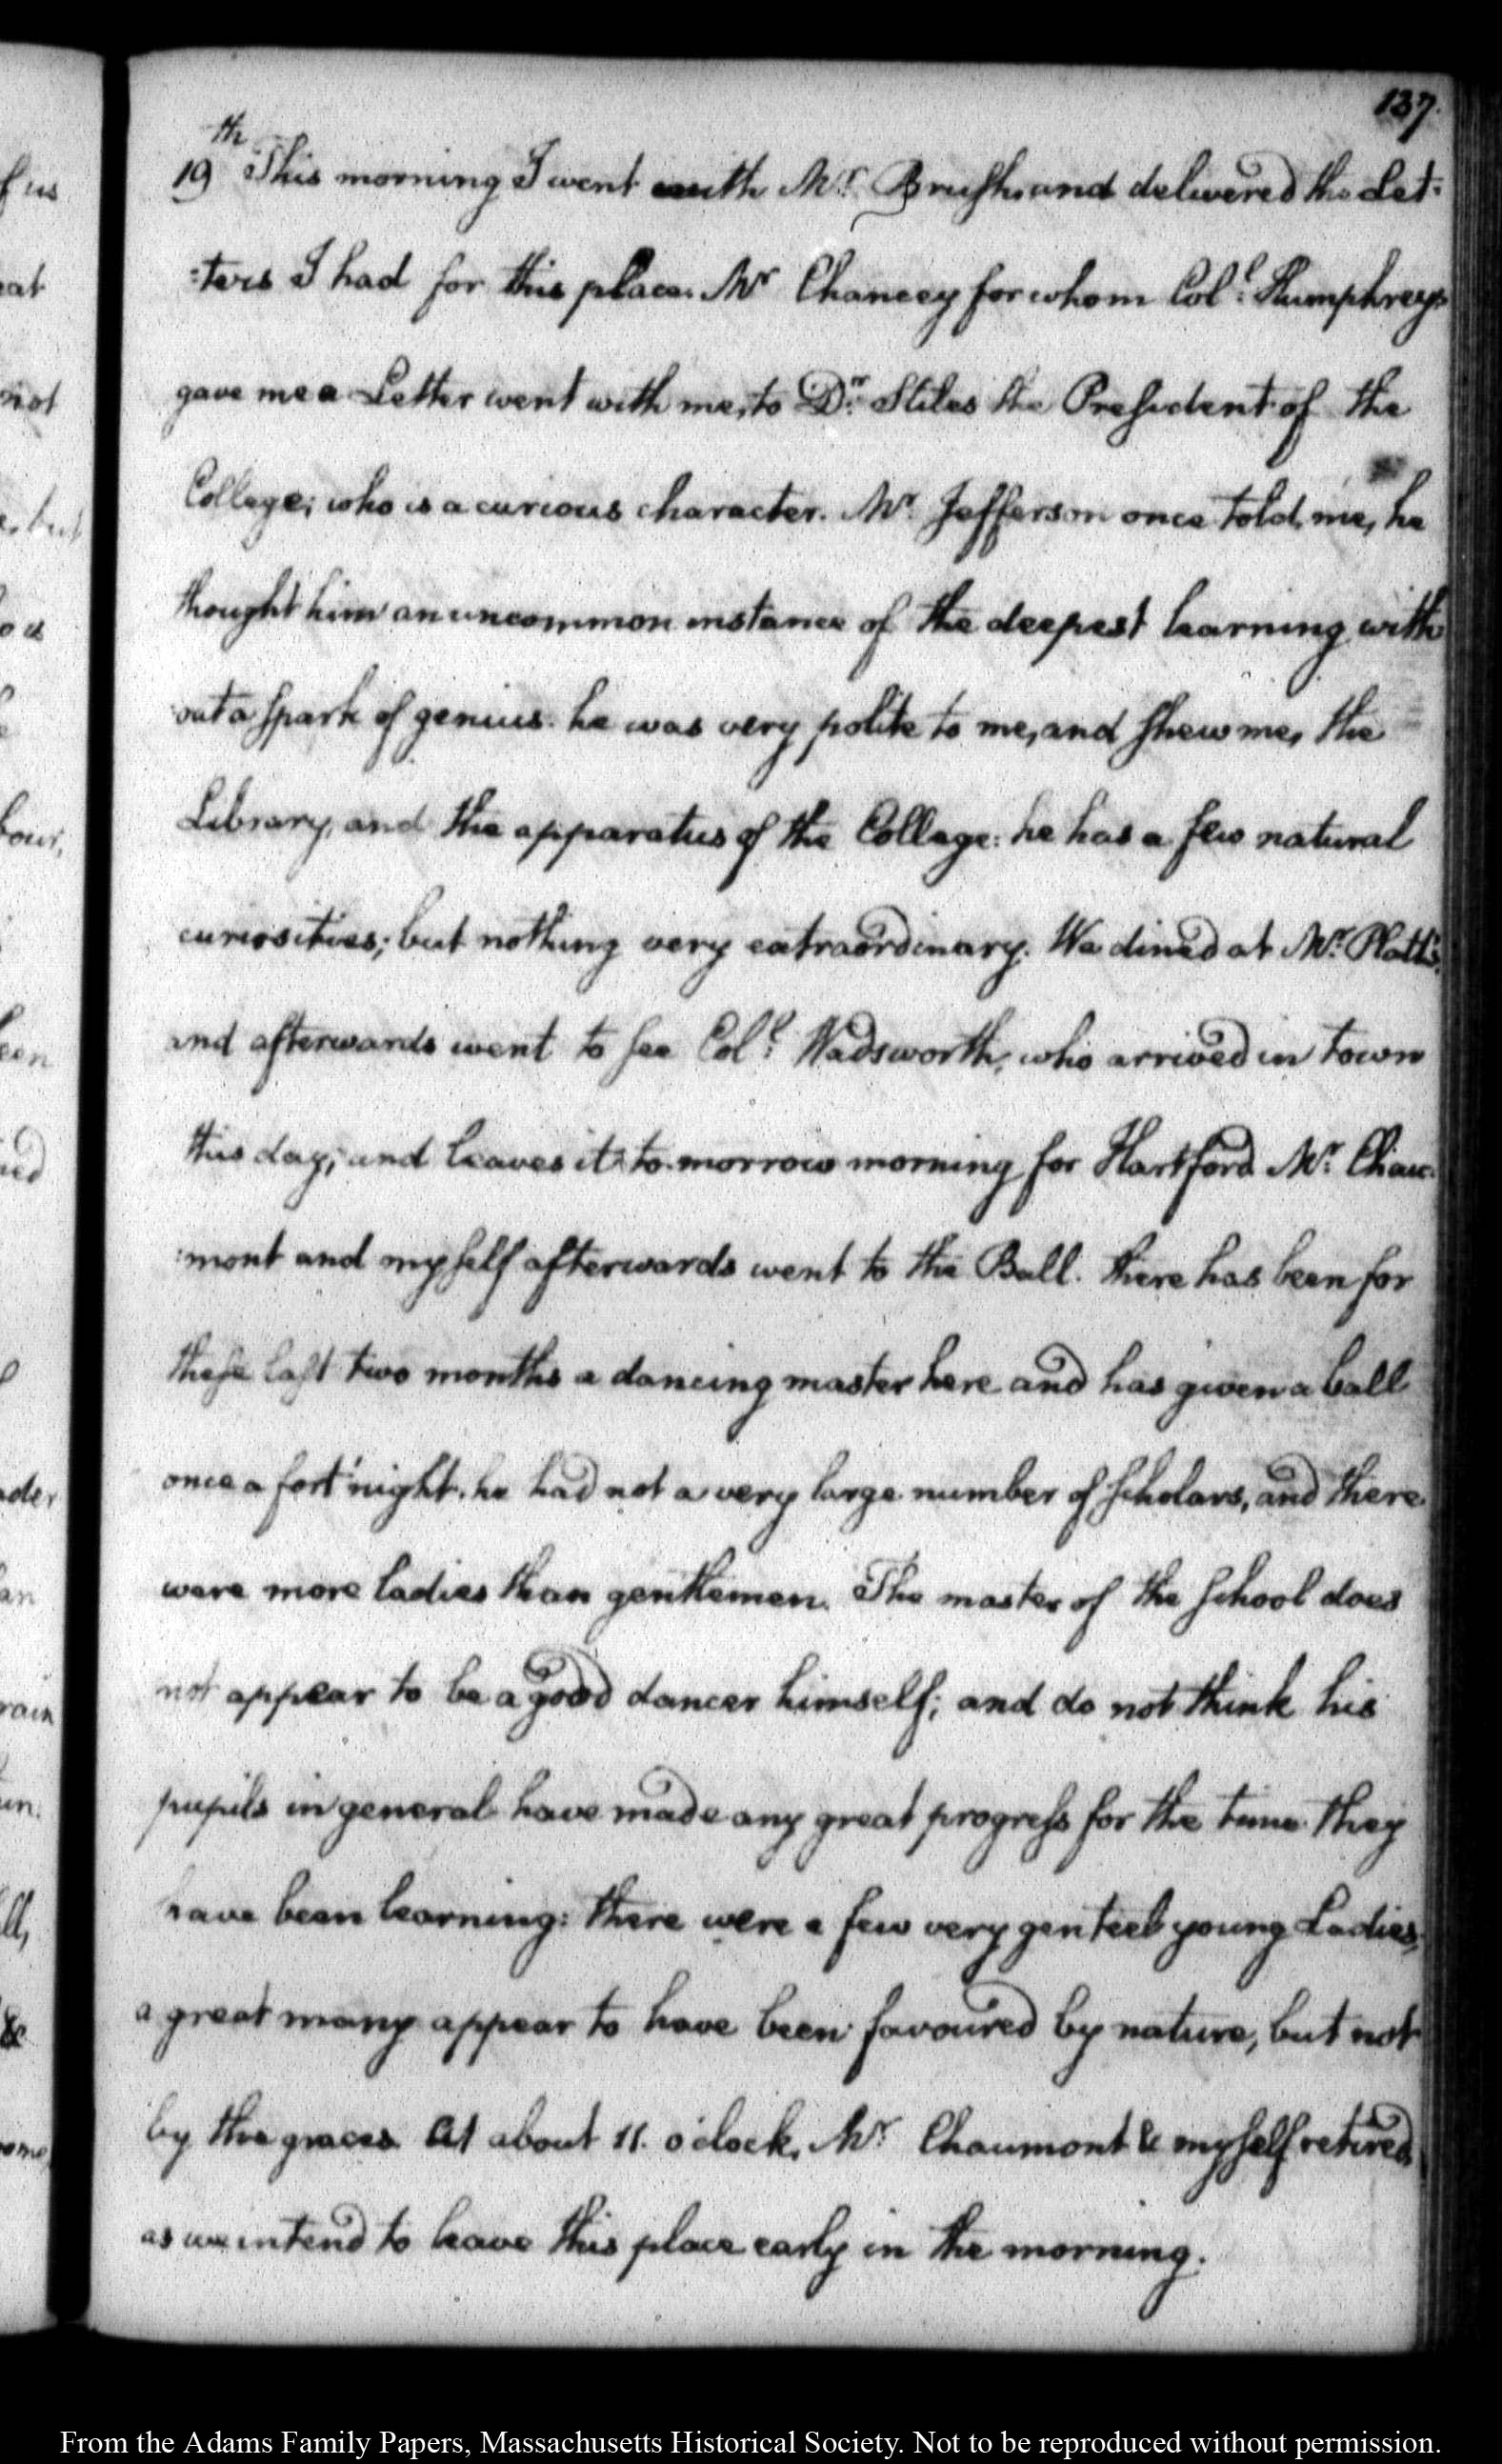 137.
19th This morning I went with Mr. Brush, and delivered the Let-
-ters I had for this place. Mr Chancey for whom Coll. Humphreys
gave me a Letter went with me, to Dr. Stiles the President of the
College; who is a curious character. Mr. Jefferson once told me, he
thought him an uncommon instance of the deepest learning with
out a spark of genius. he was very polite to me, and shew me, the
Library, and the apparatus of the College: he has a few natural
curiosities; but nothing very extraordinary. We dined at Mr. Platt's,
and afterwards went to see Coll. Wadsworth, who arrived in town
this day; and leaves it to-morrow morning for Hartford. Mr. Chau-
-mont and myself afterwards went to the Ball. there has been for
these last two months a dancing master here and has given a ball
once a fort'night. he had not a very large number of scholars, and there
were more ladies than gentlemen. The master of the school does
not appear to be a good dancer himself; and do not think his
pupils in general have made any great progress for the time they
have been learning: there were a few very genteel young Ladies,
a great many appear to have been favoured by nature, but not
by the graces. At about 11. o'clock, Mr. Chaumont & myself retired
as we intend to leave this place early in the morning.
f us
eat
not
e, but
bour,
een
ed
der
an
rain
un.
ll,
&c
ome,
From the Adams Family Papers, Massachusetts Historical Society. Not to be reproduced without permission.